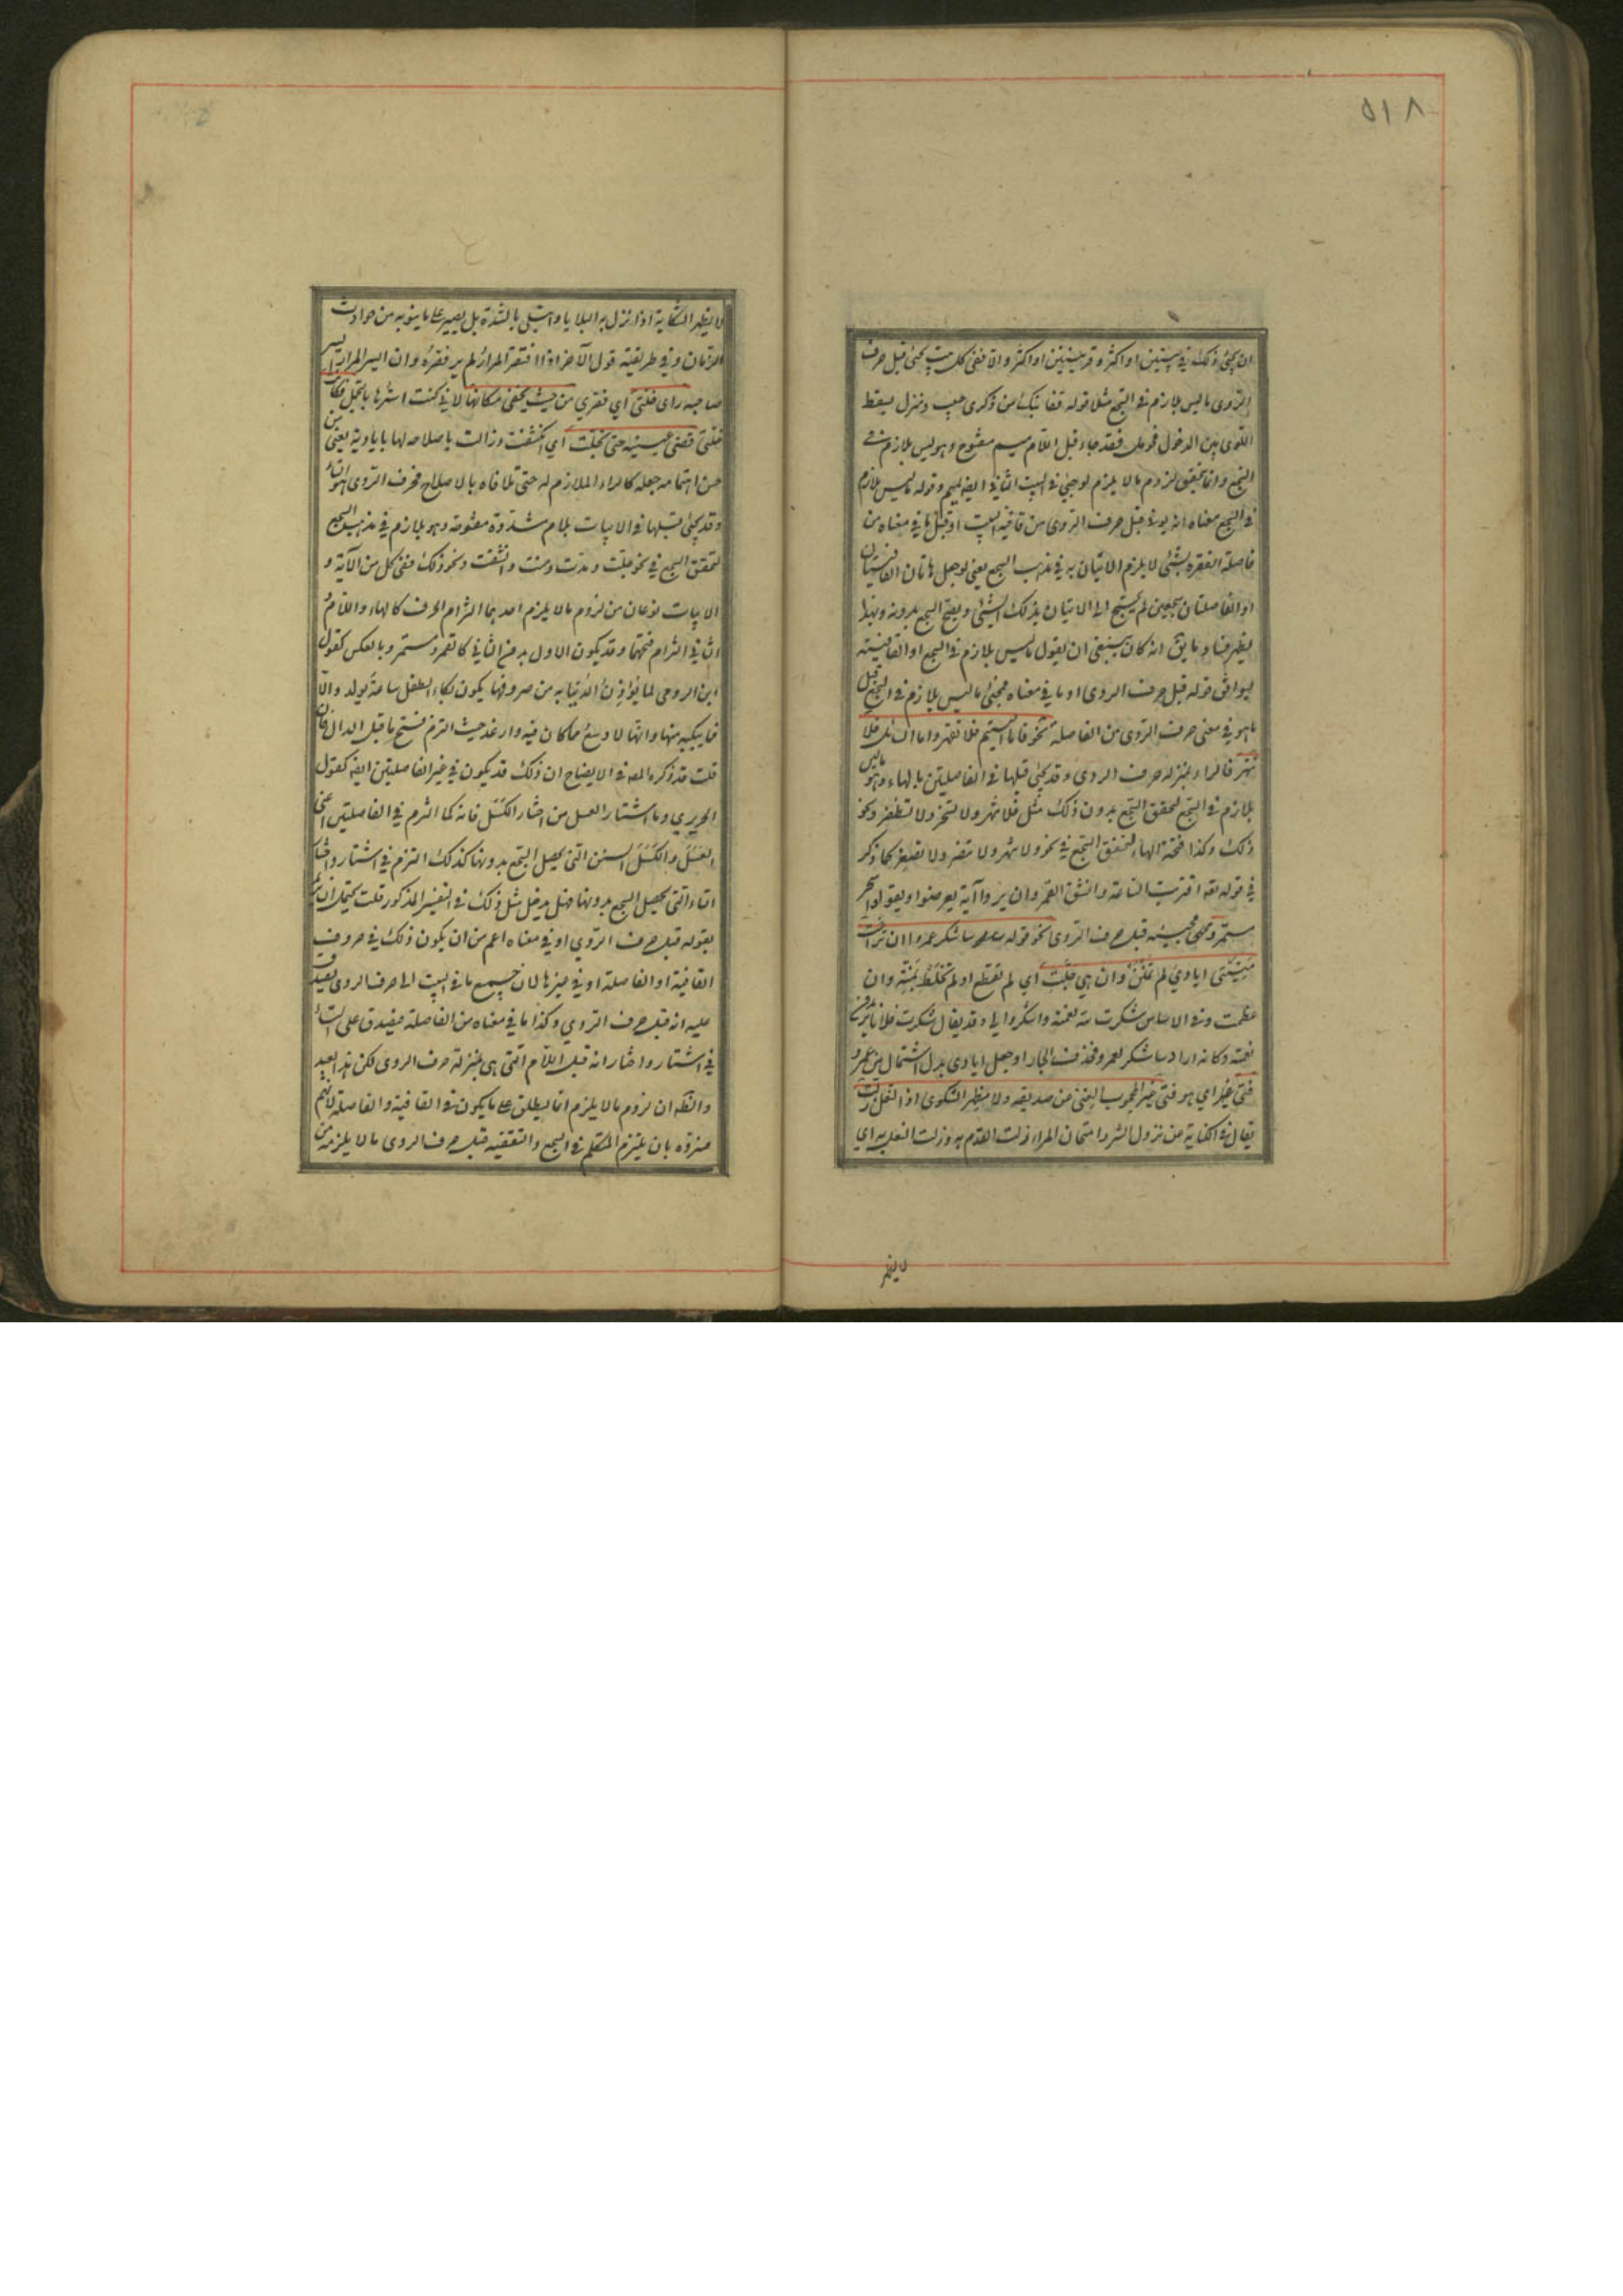 ٥١٨
ان يجئ ذلك في بيتين او اكثر و قرينتين او اكثر والا ففى كل بيت يجئ قبل حرف
الروى ما ليس بلازم في السجع مثلا قوله قفا نبك من ذكرى حبيب ومنزل بسقط
اللوى بين الدخول فحومل فقد جاء قبل اللام ميم مفتوح وهو ليس بلازم في
السجع وانما يتحقق لزوم ما لا يلزم لو جئ في البيت الثاني ايضا بميم وقوله ما ليس بلازم
في السجع معناه ان يؤتى قبل حرف الروى من قافية البيت او قبل ما في معناه من
فاصلة الفقرة بشئ لا يلزم الاتيان به في مذهب السجع يعنى لو جعل هاتان القافيتان
او الفاصلتان سجعتين لم يحتج الى الاتيان بذلك الشئ ويصح السجع بدونه وبهذا
يظهر فساد ما يق انه كان ينبغى ان يقول ما ليس بلازم في السجع او القافية
ليوافق قوله قبل حرف الروى او ما في معناه فمجئ ما ليس بلازم في السجع قبل
ما هو في معنى حرف الروى من الفاصلة نحو فاما اليتيم فلا تقهر واما السائل فلا
تنهر فالراء بمنزلة حرف الروى وقد جئ قبلها في الفاصلتين بالهاء وهو ما ليس
بلازم في السجع لتحقق السجع بدون ذلك مثل فلا تنهر ولا تسخر ولا تظفر ونحو
ذلك وكذا فتحة الهاء لتحقق السجع في نحو ولا تنهر ولا تبصر ولا تصغر كما ذكر
في قوله تعه اقتربت الساعة وانشق القمر وان يروا آية يعرضوا ويقولوا سحر
مستمر ومجئ قبل حرف الروى نحو قوله ساشكر عمروا ان تراخت
منيتى ايادي لم تمنن وان هي جلت اي لم تقطع او لم تخلط بمنة وان
عظمت وفي الاساس شكرت لله نعمته واشكروا لي وقد يقال شكرت فلانا يريدون
نعمته وكانه اراد ساشكر لعمرو فحذف الجار او جعل ايادى بدل اشتمال من عمرو
فتى غير اي هو فتى غير محجوب الغنى عن صديقه ولا مظهر الشكوى اذا النعل زلت
يقال في الكناية عن نزول الشر وامتحان المرء زلت القدم به وزلت النعل به اي
لا يظهر
لا يظهر الشكاية اذا نزل به البلايا وابتلى بالشدة بل يصبر على ما ينوبه من حوادث
الزمان وفي طريقته قول الآخر اذا افتقر المرار لم ير فقره وان ايسر المرار ايسر
صاحبه راى خلتى اي فقرى من حيث يخفى مكانها لانى كنت استرها بالتجمل فكانت
قذى عينيه حتى تجلت اي انكشفت وزالت باصلاحه لها باياديه يعنى من
حسن اهتمامه جعله كالداء الملازم له حتى تلافاه بالاصلاح فحرف الروى هو التاء
وقد جئ قبلها في الابيات بلام مشددة مفتوحة وهو ليس بلازم في مذهب السجع
لتحقق السجع في نحو جلت ومدت ومنت وانشقت ونحو ذلك ففى كل من الآية و
الابيات نوعان من لزوم ما لا يلزم احدهما التزام الحرف كالهاء واللام و
الثاني التزام فتحهما وقد يكون الاول بدون الثاني كالقمر ومستمر وبالعكس كقول
ابن الرومى لما تؤذن الدنيا به من صروفها يكون بكاء الطفل ساعة يولد والا
فما يبكيه منها وانها لاوسع مما كان فيه وارغد حيث التزم فتح ما قبل الدال فان
قلت قد ذكر المص في الايضاح ان ذلك قد يكون في غير الفاصلتين ايضا كقول
الحريري وما اشتار العسل من اختار الكسل فانه كما التزم في الفاصلتين اعنى
العسل والكسل السين التى يحصل السجع بدونها كذلك التزم في اشتار واختار
التاء التى يحصل السجع بدونها فهل يدخل مثل ذلك في التفسير المذكور قلت يحتمل ان يريد
بقوله قبل حرف الروي او في معناه اعم من ان يكون ذلك في حروف
القافية او الفاصلة او في غيرها لان جميع ما في البيت الى حرف الروى يصدق
عليه انه قبل حرف الروي وكذا ما في معناه من الفاصلة فيصدق على التاء
في اشتار واختار انه قبل اللام التى هى بمنزلة حرف الروى لكن هذا بعيد
والظه ان لزوم ما لا يلزم انما يطلق على ما يكون في القافية والفاصلة لانهم
فسروه بان يلتزم المتكلم في السجع والتقفية قبل حرف الروى ما لا يلزمه من